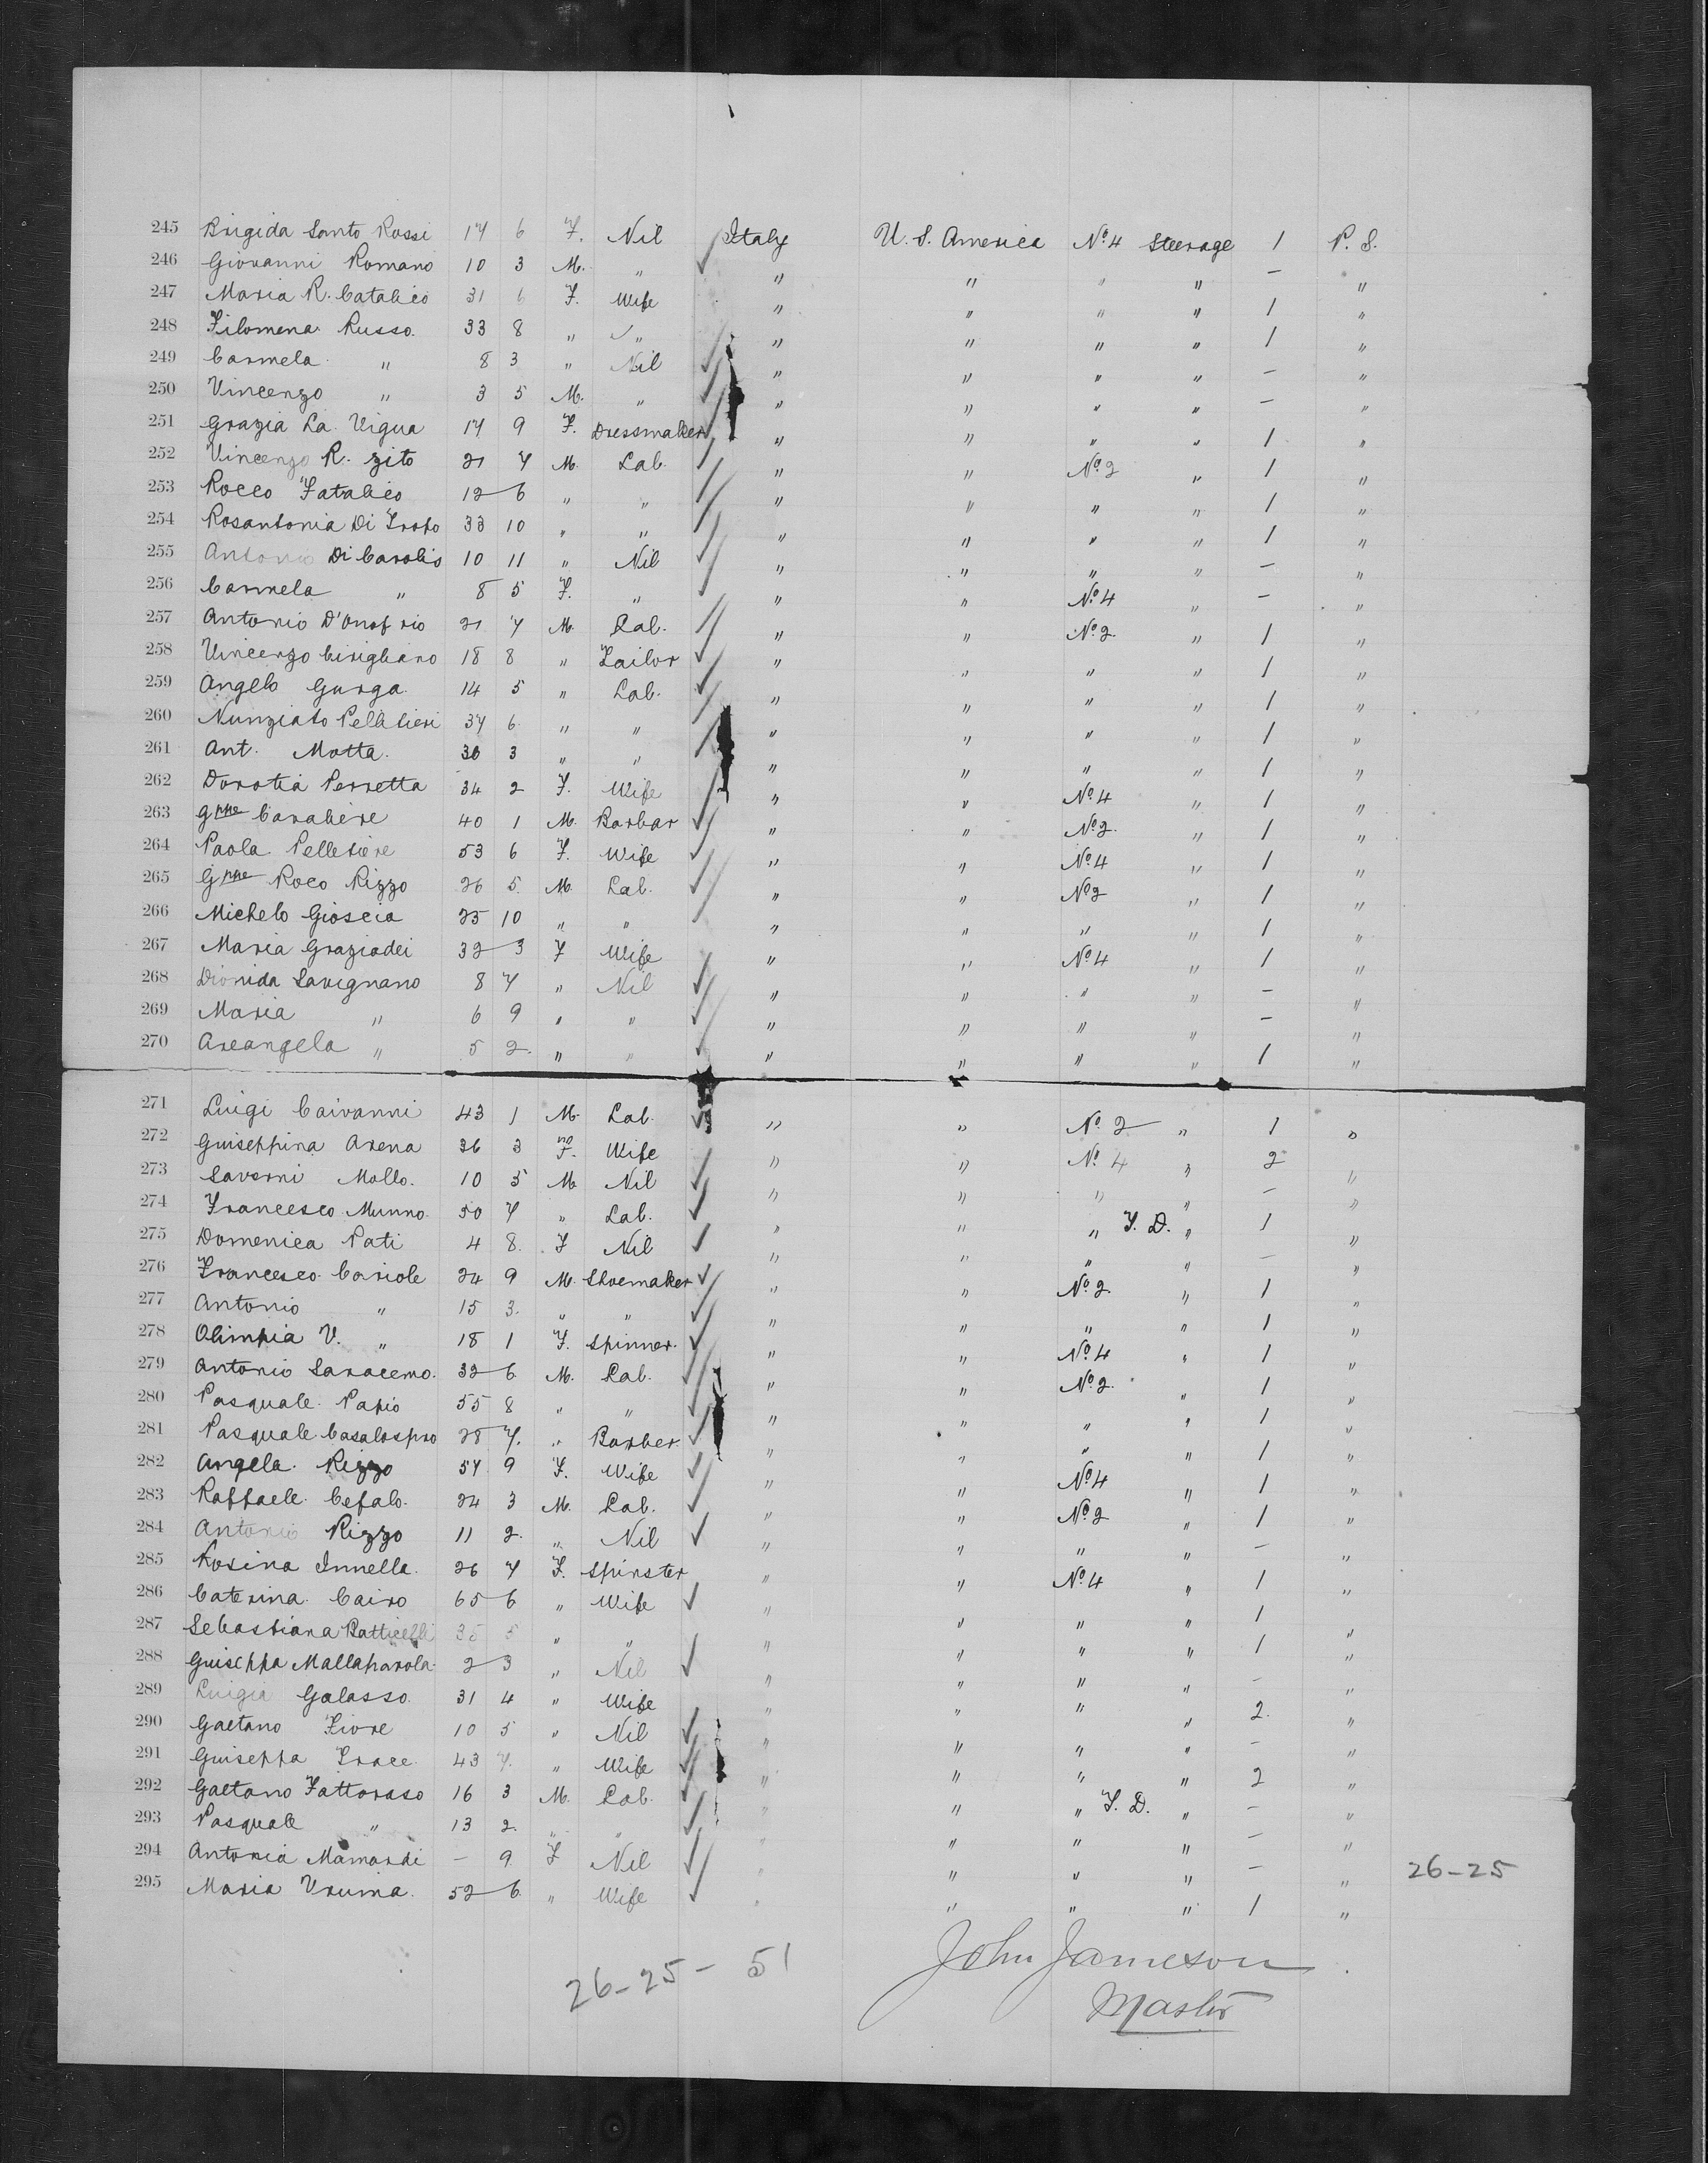 245 Brigida Santo Rossi 17 6 F. Nil Italy U. S. America No. 4 Steerage 1 P. S.
246 Giovanni Romano 10 3 M. " " " " " - "
247 Maria R. Catalico 31 6 F. Wife " " " " 1 "
248 Filomena Russo. 33 8 " " " " " " 1 "
249 Carmela " 8 3 " Nil " " " " - "
250 Vincenzo " 3 5 M. " " " " " - "
251 Grazia La Vigua 17 9 F. Dressmaker " " " " 1 "
252 Vincenzo R. Zito 21 7 M. Lab. " " No. 2 " 1 "
253 Rocco Fatalico 12 6 " " " " " " 1 "
254 Rosantonia Di Tropo 33 10 " " " " " " 1 "
255 Antonio Di Carolis 10 11 " Nil " " " " - "
256 Carmela " 8 5 F. " " " No. 4 " - "
257 Antonio D'Onofrio 21 7 M. Lab. " " No. 2. " 1 "
258 Vincenzo Cirigliano 18 8 " Tailor " " " " 1 "
259 Angelo Gurga 14 5 " Lab. " " " " 1 "
260 Nunziato Pelletieri 37 6 " " " " " " 1 "
261 Ant. Motta. 30 3 " " " " " " 1 "
262 Dorotia Perretta 34 2 F. Wife " " No. 4 " 1 "
263 Gppe Cavaliere 40 1 M. Barbar " " No. 2. " 1 "
264 Paola Pelletiere 53 6 F. Wife " " No. 4 " 1 "
265 Gppe Roco Rizzo 26 5. M. Lab. " " No 2 " 1 "
266 Michelo Gioscia 25 10 " " " " " " 1 "
267 Maria Graziadei 32 3 F Wife " " No. 4 " 1 "
268 Dionida Savignano 8 7 " Nil " " " " - "
269 Maria " 6 9 " " " " " " - "
270 Areangela " 5 2. " " " " " " 1 "
271 Luigi Caivanni 43 1 M. Lab. " " No. 2 " 1 "
272 Guiseppina Arena 36 3 F. Wife " " No. 4 " 2 "
273 Saverni Mollo. 10 5 M Nil " " " " - "
274 Francesco Munno. 50 7 " Lab. " " " F. D. " 1 "
275 Domenica Pati 4 8. F Nil " " " " - "
276 Francesco Cariole 24 9 M. Shoemaker " " No. 2. " 1 "
277 Antonio " 15 3. " " " " " " 1 "
278 Olimpia V. " 18 1 F. Spinner. " " No. 4 " 1 "
279 Antonio Saracemo. 32 6 M. Lab. " " No. 2. " 1 "
280 Pasquale Papio 55 8 " " " " " " 1 "
281 Pasquale Casalospro 28 7. " Barber. " " " " 1 "
282 Angela Rizzo 57 9 F. Wife " " No. 4 " 1 "
283 Raffaele Cefalo. 24 3 M. Lab. " " No. 2 " 1 "
284 Antonio Rizzo 11 2. " Nil " " " " - "
285 Rosina Innella. 26 7 F. Spinster " " No. 4 " 1 "
286 Caterina Cairo 65 6 " Wife " " " " 1 "
287 Sebastiana Batticelli 35 5 " " " " " " 1 "
288 Guiseppa Mallaparola 2 3 " Nil " " " " - "
289 Luigia Galasso 31 4 " Wife " " " " 2. "
290 Gaetano Fiore 10 5 " Nil " " " " - "
291 Guiseppa Trace 43 7. " Wife " " " " 2 "
292 Gaetano Fattoraso 16 3 M. Lab. " " " F. D. " - "
293 Pasquale " 13 2. " " " " " " - "
294 Antonia Mamardi - 9 F Nil " " " " - " 26-25
295 Maria Vruma. 52 6 " Wife " " " " 1 "
26-25- 51
John Jameson
Master